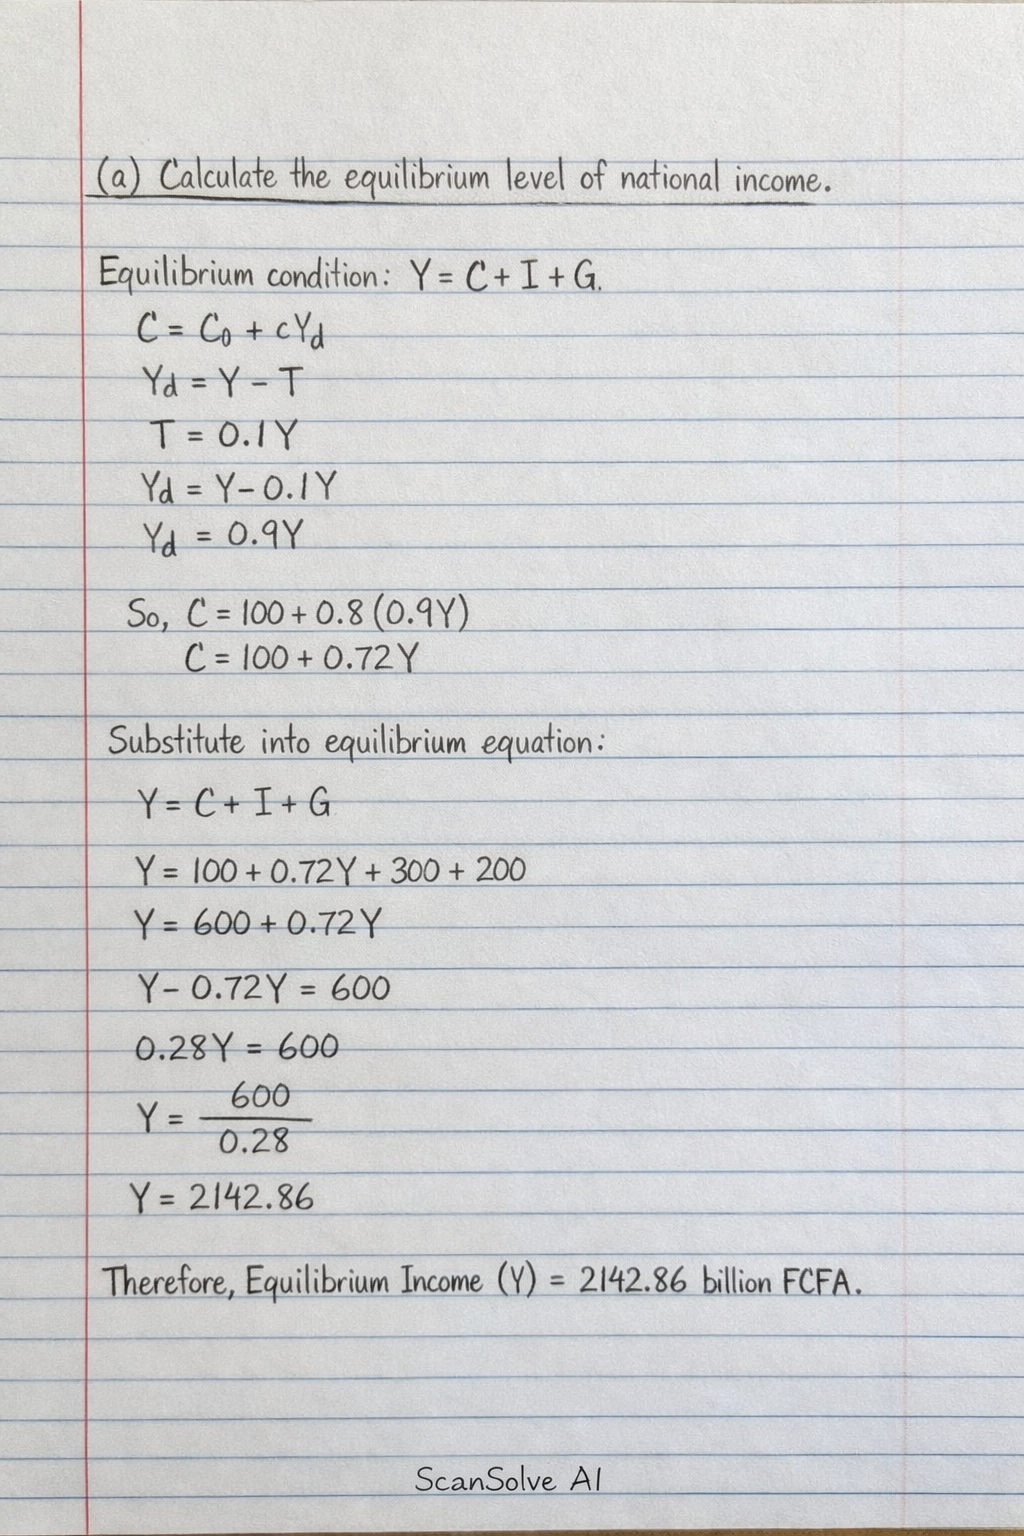 (a) Calculate the equilibrium level of national income.
Equilibrium condition: Y = C + I + G.
C = C₀ + cYd
Yd = Y - T
T = 0.1Y
Yd = Y - 0.1Y
Yd = 0.9Y
So, C = 100 + 0.8 (0.9Y)
C = 100 + 0.72Y
Substitute into equilibrium equation:
Y = C + I + G
Y = 100 + 0.72Y + 300 + 200
Y = 600 + 0.72Y
Y - 0.72Y = 600
0.28Y = 600
Y = 600 / 0.28
Y = 2142.86
Therefore, Equilibrium Income (Y) = 2142.86 billion FCFA.
ScanSolve AI